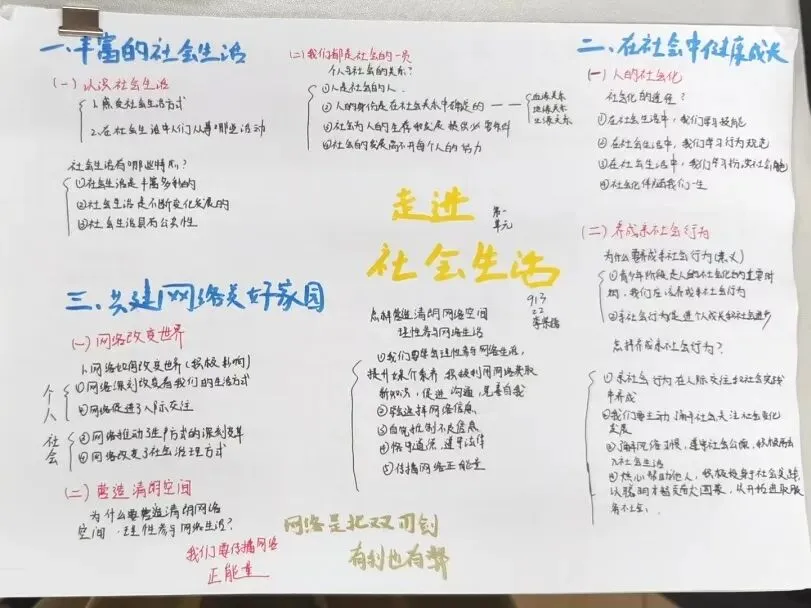 一、丰富的社会生活
(一) 认识社会生活
1.感受社会生活方式
2.在社会生活中人们从事哪些活动
社会生活有哪些特点?
①社会生活是丰富多彩的
②社会生活是不断变化发展的
③社会生活具有公共性
(二)我们都是社会的一员
个人与社会的关系?
①人是社会的人
②人的身份是在社会关系中确定的——
血缘关系
地缘关系
业缘关系
③社会为人的生存和发展提供必要条件
④社会的发展离不开每个人的努力
走进
社会生活
第一
单元
913
22
二、在社会中健康成长
(一)人的社会化
社会化的途径?
①在社会生活中,我们学习技能
②在社会生活中,我们学习行为规范
③在社会生活中,我们学习扮演社会角色
④社会化伴随我们一生
(二)养成亲社会行为
为什么要养成亲社会行为(意义)
①青少年阶段是人的社会化的重要时
期,我们应该养成亲社会行为
②亲社会行为促进个人成长和社会进步
怎样养成亲社会行为?
①亲社会行为在人际交往和社会实践
中养成
②我们要主动了解社会关注社会变化
发展
③遵守社会公德,积极融
入社会生活
④热心帮助他人,积极投身于社会实践
三、共建网络美好家园
(一)网络改变世界
1.网络如何改变世界(积极影响)
个人
①网络深刻改变着我们的生活方式
②网络促进了人际交往
社会
③网络推动了生产方式的深刻变革
④网络改变了社会治理方式
(二)营造清朗空间
为什么要营造清朗网络
空间,理性参与网络生活?
我们要传播网络
正能量
怎样营造清朗网络空间
理性参与网络生活
①我们要学会理性参与网络生活,
提升媒介素养 积极利用网络获取
新知识,促进沟通,完善自我
②学会选择网络信息
③自觉抵制不良信息
④恪守道德、遵守法律
⑤传播网络正能量
网络是把双刃剑
有利也有弊